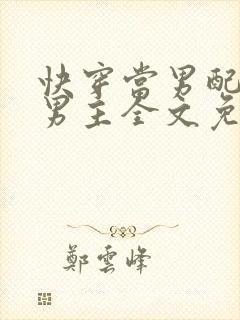 快穿当男配
男主全文免
鄭雲峰